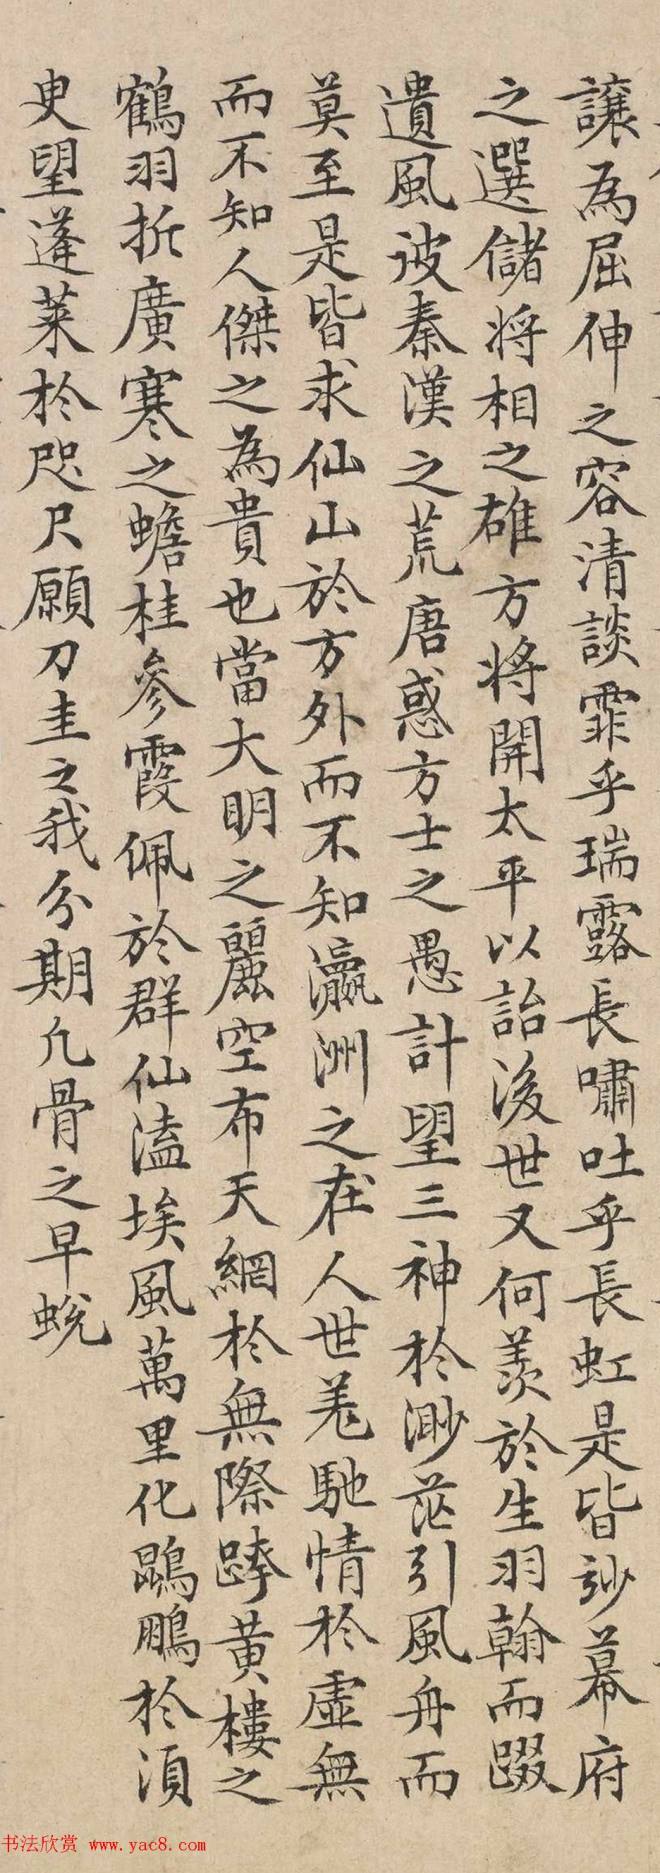 讓為屈伸之容清談霏乎瑞露長嘯吐乎長虹是皆妙幕府
之選儲將相之雄方將開太平以詒後世又何羡於生羽翰而躡
遺風波秦漢之荒唐惑方士之愚計望三神於渺茫引風舟而
莫至是皆求仙山於方外而不知瀛洲之在人世羌馳情於虛無
而不知人傑之為貴也當大明之麗空布天網於無際跨黃樓之
鶴羽折廣寒之蟾桂參霞佩於群仙溘埃風萬里化鵾鵬於須
臾望蓬萊於咫尺願刀圭之我分期凡骨之早蛻
书法欣赏 www.yac8.com